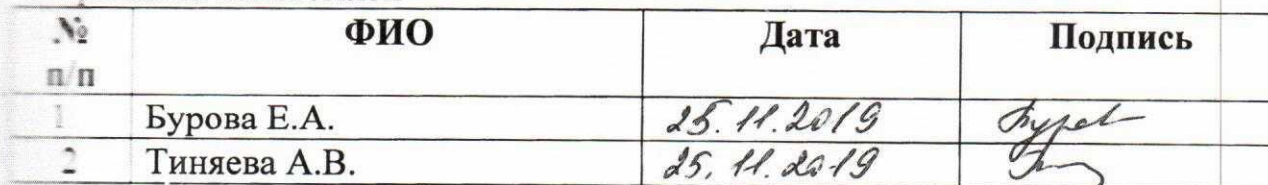 № ФИО Дата Подпись
п/п
1 Бурова Е.А. 25.11.2019
2 Тиняева А.В. 25.11.2019